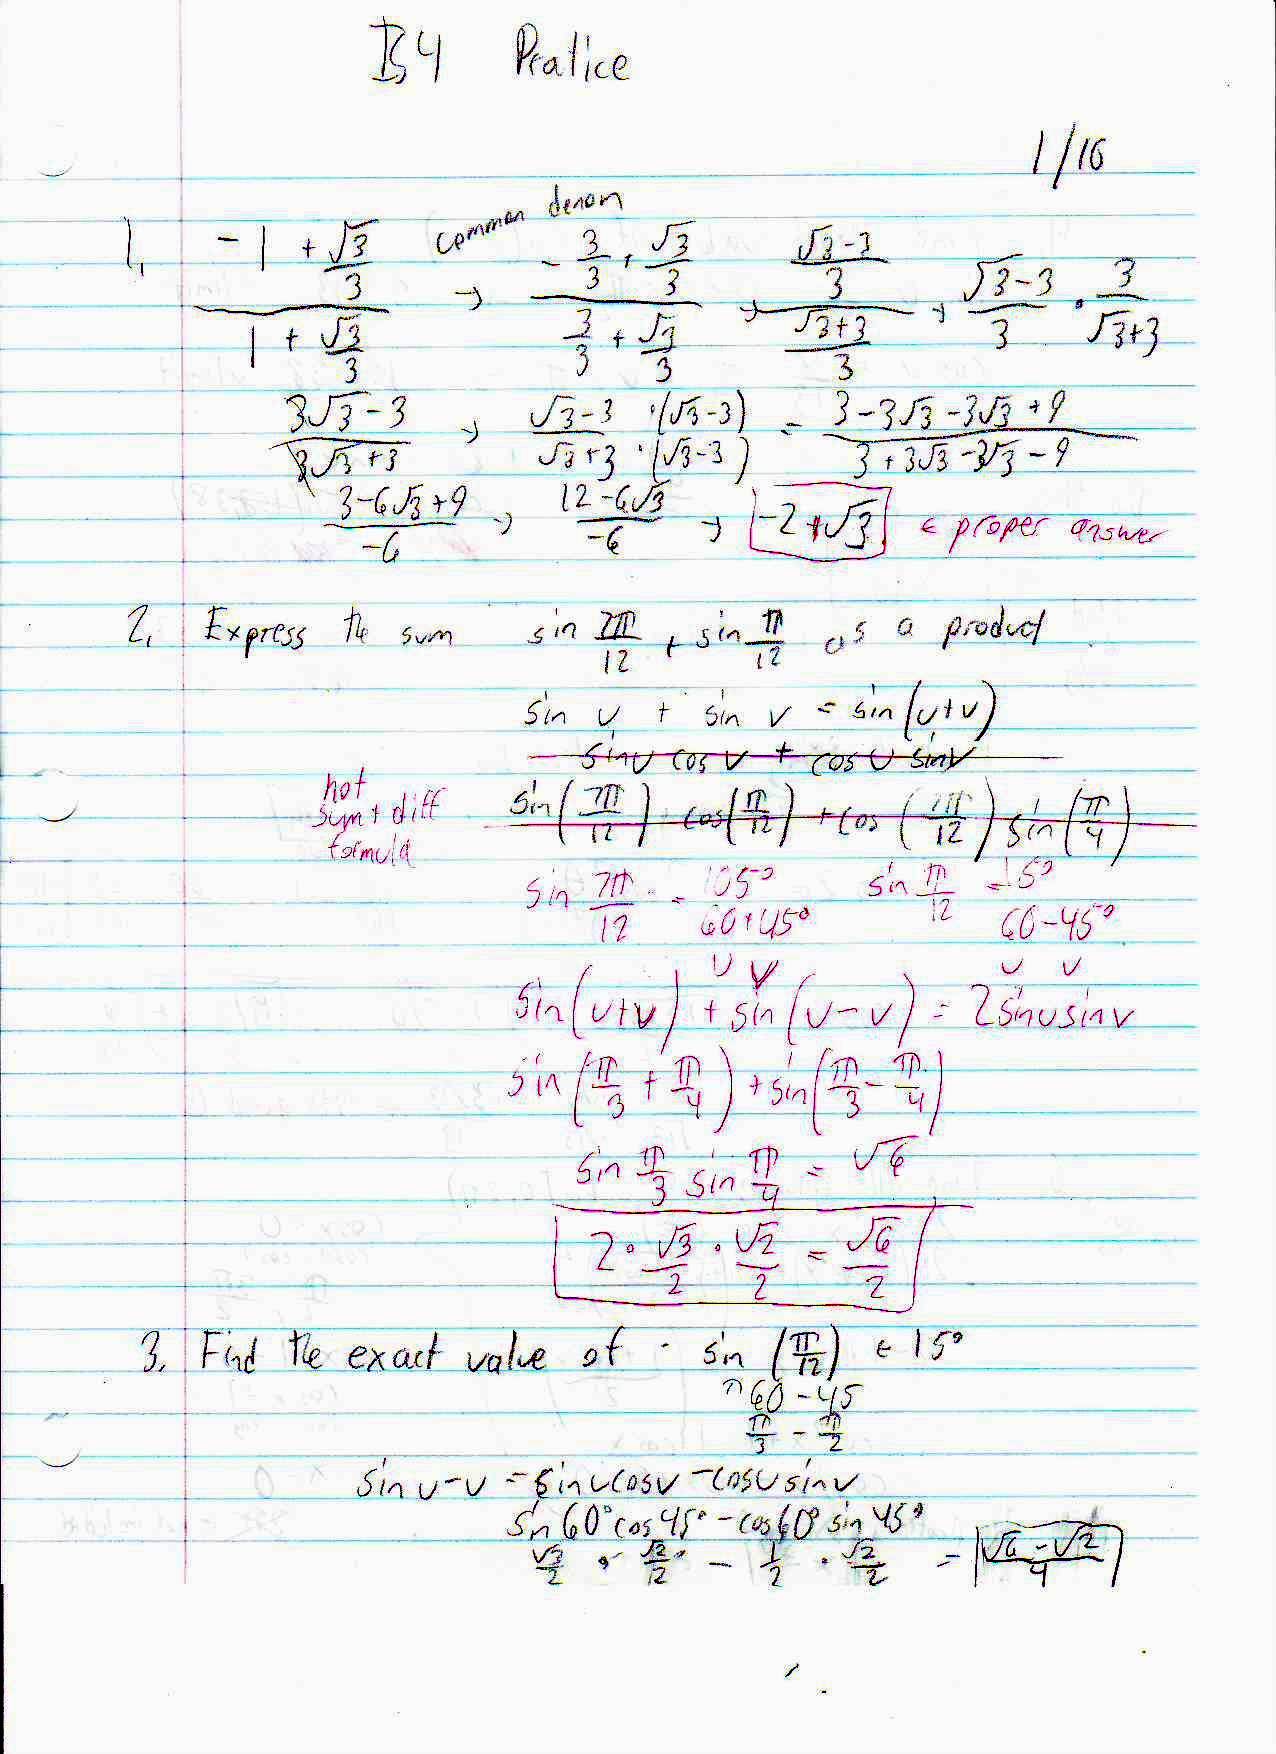 B4 Pratice
1/16
1. (-1 + √3/3)/(1 + √3/3) common denom → (-3/3 + √3/3)/(3/3 + √3/3) → ((√3-3)/3)/((√3+3)/3) → (√3-3)/3 · 3/(√3+3)
(3√3-3)/(3√3+3) → (√3-3 ·(√3-3))/(√3+3 ·(√3-3)) = (3-3√3-3√3+9)/(3+3√3-3√3-9)
(3-6√3+9)/-6 → (12-6√3)/-6 → -2+√3 ← proper answer
2. Express the sum sin 7π/12 + sin π/12 as a product
sin u + sin v = sin(u+v)
sinu cosv + cosu sinv
not sum + diff formula
sin(7π/12) cos(π/12) + cos(7π/12) sin(π/4)
sin 7π/12 = 105° sin π/12 = 15°
60+45° 60-45°
u v u v
sin(u+v) + sin(u-v) = 2sinusinv
sin(π/3 + π/4) + sin(π/3 - π/4)
sin π/3 sin π/4 = √6
2 · √3/2 · √2/2 = √6/2
3. Find the exact value of - sin (π/12) ← 15°
60-45
π/3 - π/2
sin u-v = sinucosv - cosusinv
sin60°cos45° - cos60° sin 45°
√3/2 · √2/2 - 1/2 · √2/2 = (√6-√2)/4